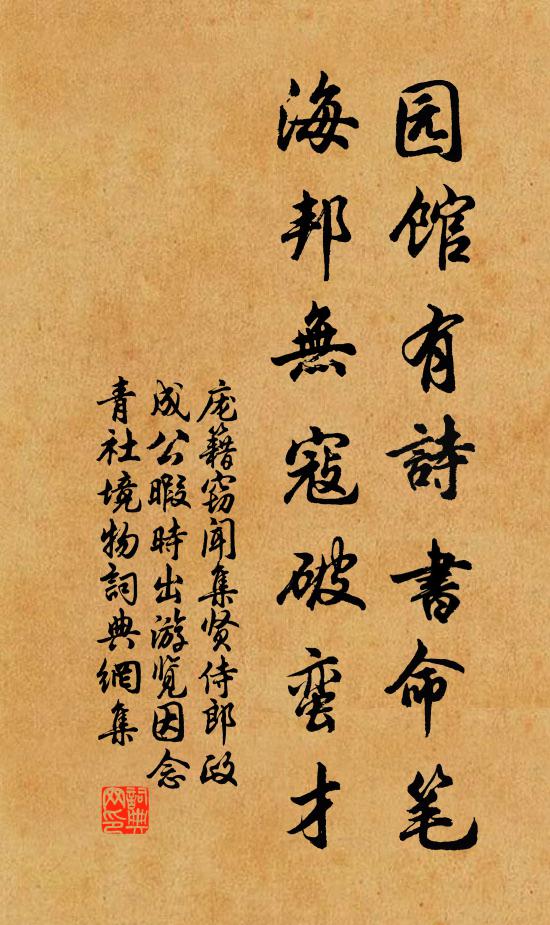 园馆有詩書命笔
海邦無寇破蛮才
庞籍窃闻集贤侍郎政
成公暇時出游览因念
青社境物詞典網集
詞典
网印